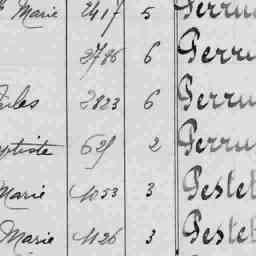 Marie 2417 5 Perru
2786 6 Perru
Jules 2823 6 Perru
ptiste 629 2 Perru
Marie 1053 3 Pestel
Marie 1126 3 Pestel